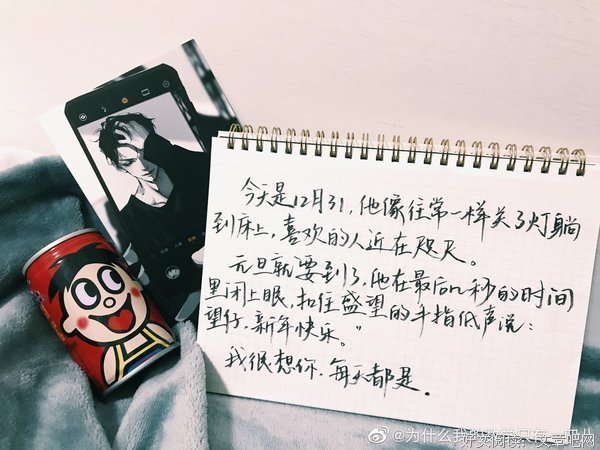 今天是12月31,他像往常一样关了灯躺
到床上,喜欢的人近在咫尺。
元旦就要到了,他在最后几秒的时间
里闭上眼,扣住盛望的手指低声说:
望仔,新年快乐。”
我很想你,每天都是。
@为什么我
文章吧网